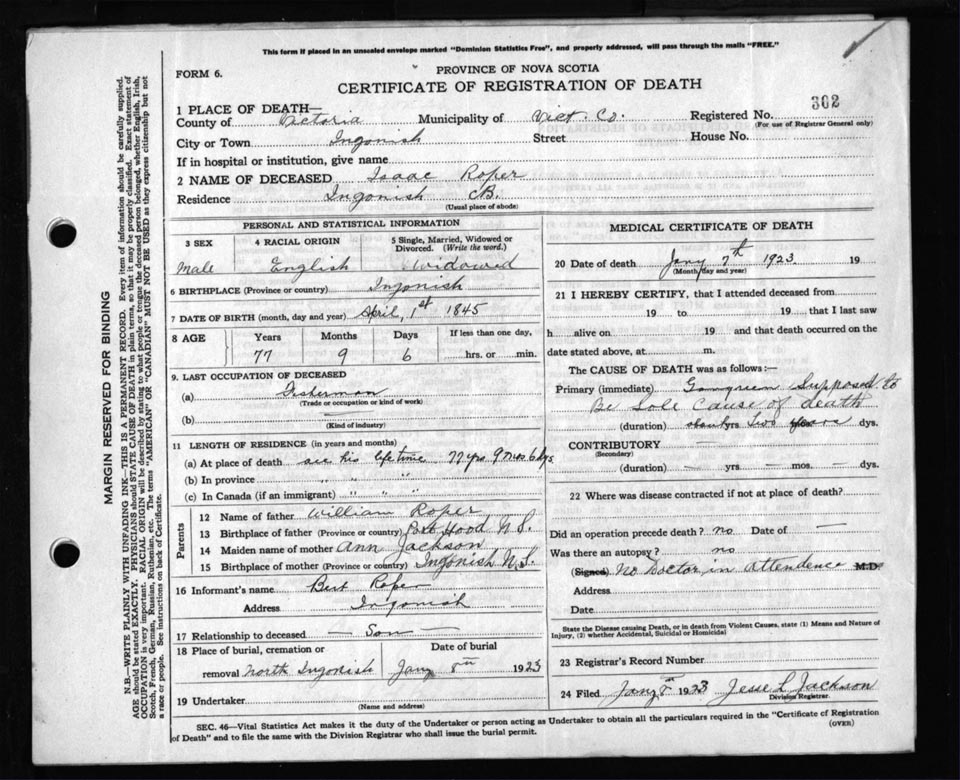 This form if placed in an unsealed envelope marked "Dominion Statistics Free", and properly addressed, will pass through the mails "FREE."
FORM 6.
PROVINCE OF NOVA SCOTIA
CERTIFICATE OF REGISTRATION OF DEATH
302
1 PLACE OF DEATH—
County of Victoria Municipality of Vict. Co. Registered No.
(For use of Registrar General only)
City or Town Ingonish Street House No.
If in hospital or institution, give name
2 NAME OF DECEASED Isaac Roper
Residence Ingonish C.B.
(Usual place of abode)
PERSONAL AND STATISTICAL INFORMATION
3 SEX 4 RACIAL ORIGIN 5 Single, Married, Widowed or Divorced. (Write the word.)
Male English Widowed
6 BIRTHPLACE (Province or country) Ingonish
7 DATE OF BIRTH (month, day and year) April, 1st 1845
8 AGE Years Months Days If less than one day,
77 9 6 hrs. or min.
9. LAST OCCUPATION OF DECEASED
(a) Fisherman
(Trade or occupation or kind of work)
(b) —
(Kind of industry)
11 LENGTH OF RESIDENCE (in years and months)
(a) At place of death all his lifetime 77 yrs 9 mos 6 dys
(b) In province " " "
(c) In Canada (if an immigrant) " " "
Parents
12 Name of father William Roper
13 Birthplace of father (Province or country) Port Hood N.S.
14 Maiden name of mother Ann Jackson
15 Birthplace of mother (Province or country) Ingonish N.S.
16 Informant's name Burt Roper
Address Ingonish
17 Relationship to deceased — Son —
18 Place of burial, cremation or Date of burial
removal North Ingonish Jany 8th 1923
19 Undertaker
(Name and address)
MEDICAL CERTIFICATE OF DEATH
20 Date of death Jany 7th 1923. 19
(Month day and year)
21 I HEREBY CERTIFY, that I attended deceased from
19 to 19 that I last saw
h alive on 19 and that death occurred on the
date stated above, at m.
The CAUSE OF DEATH was as follows:—
Primary (immediate) Gangreen Supposed to
Be Sole Cause of death
(duration) yrs. two dys.
CONTRIBUTORY —
(Secondary)
(duration) — yrs. — mos. — dys.
22 Where was disease contracted if not at place of death?
Did an operation precede death? no Date of —
Was there an autopsy? no
(Signed) No Doctor in Attendence M.D.
Address
Date
State the Disease causing Death, or in death from Violent Causes, state (1) Means and Nature of
Injury, (2) whether Accidental, Suicidal or Homicidal
23 Registrar's Record Number
24 Filed Jany 8th 1923 Jesse L Jackson
Division Registrar.
SEC. 46—Vital Statistics Act makes it the duty of the Undertaker or person acting as Undertaker to obtain all the particulars required in the "Certificate of Registration
of Death" and to file the same with the Division Registrar who shall issue the burial permit.
(OVER)
MARGIN RESERVED FOR BINDING
N.B.—WRITE PLAINLY WITH UNFADING INK—THIS IS A PERMANENT RECORD. Every item of information should be carefully supplied.
AGE should be stated EXACTLY. PHYSICIANS should STATE CAUSE OF DEATH in plain terms, so that it may be properly classified. Exact statement of
OCCUPATION is very important. RACIAL ORIGIN will be described by stating to what people or tongue the deceased person belonged, whether English, Irish,
Scotch, French, German, Russian, Ruthenian, etc. The terms "AMERICAN" OR "CANADIAN" MUST NOT BE USED as they express citizenship but not
a race or people. See instructions on back of Certificate.